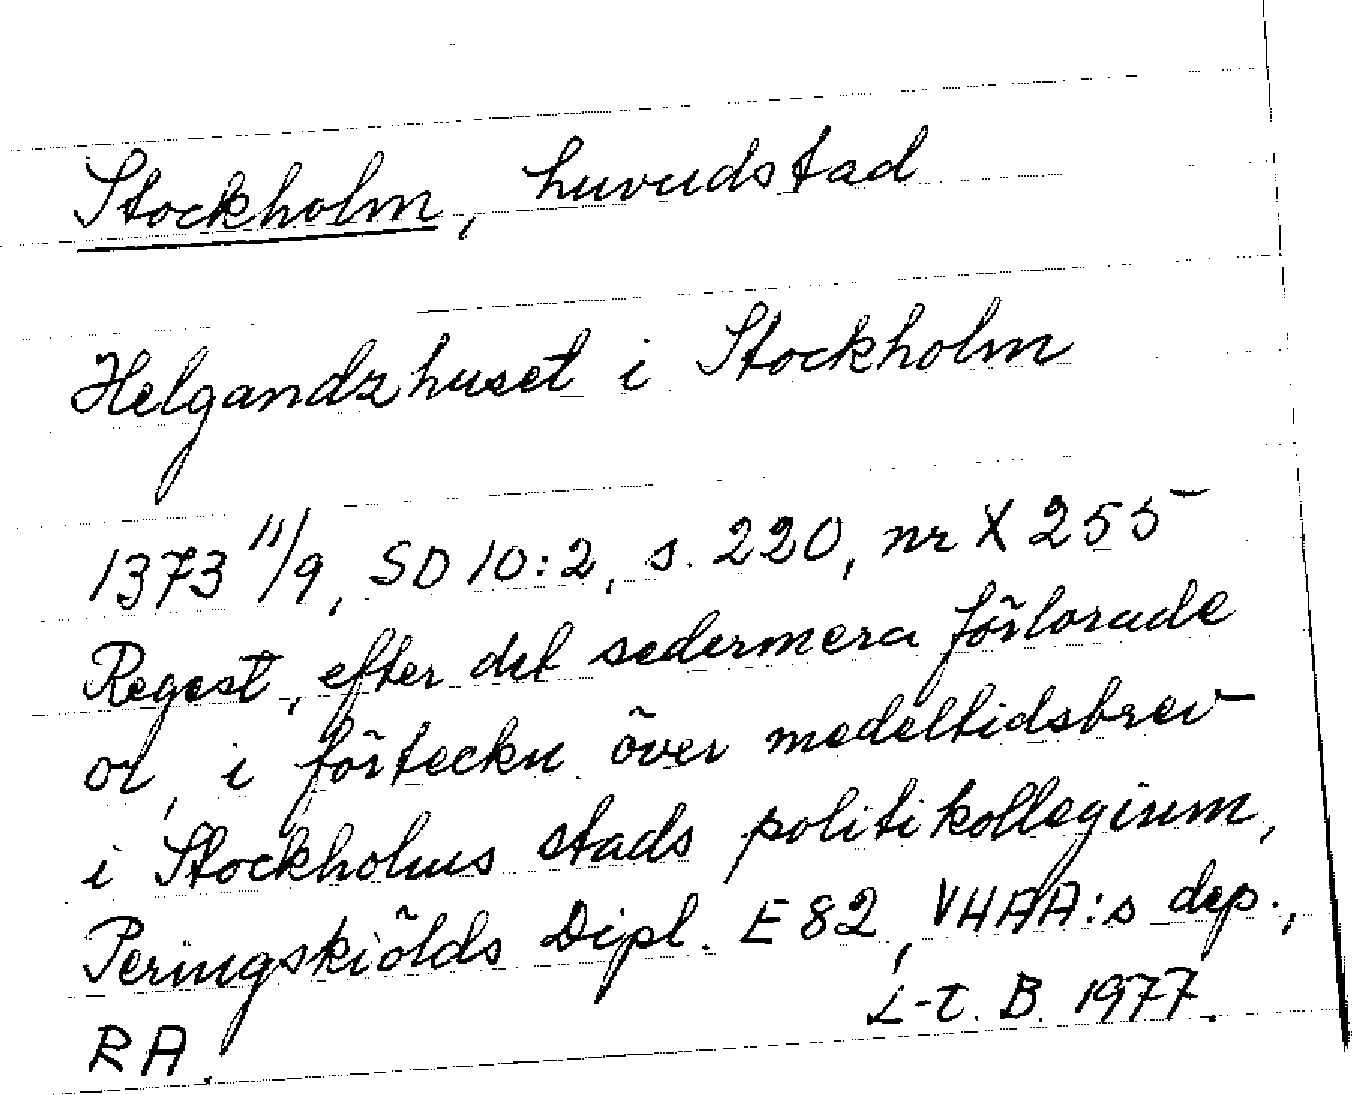 Stockholm, huvudstad
Helgandzhuset i Stockholm
1373 11/9, SD 10:2, s. 220, nr X 255
Regest, efter det sedermera förlorade
or, i förteckn. över medeltidsbrev
i Stockholms stads politikollegium,
Peringskiölds Dipl. E 82, VHAA:s dep.,
RA.
L-t. B. 1977.